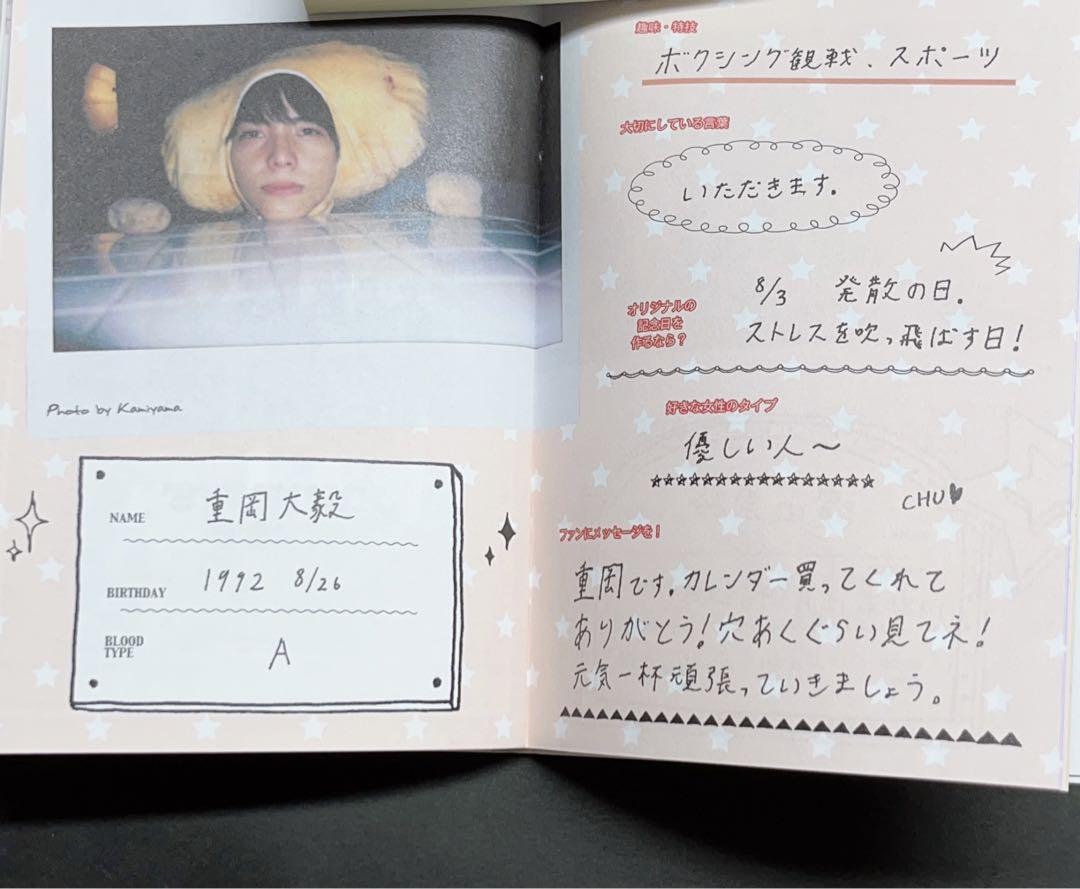 Photo by Kamiyama
NAME 重岡大毅
BIRTHDAY 1992 8/26
BLOOD
TYPE A
趣味・特技
ボクシング観戦、スポーツ
大切にしている言葉
いただきます。
オリジナルの
記念日を
作るなら?
8/3 発散の日。
ストレスを吹っ飛ばす日!
好きな女性のタイプ
優しい人〜
CHU
ファンにメッセージを!
重岡です。カレンダー買ってくれて
ありがとう!穴あくぐらい見てネ!
元気一杯頑張っていきましょう。